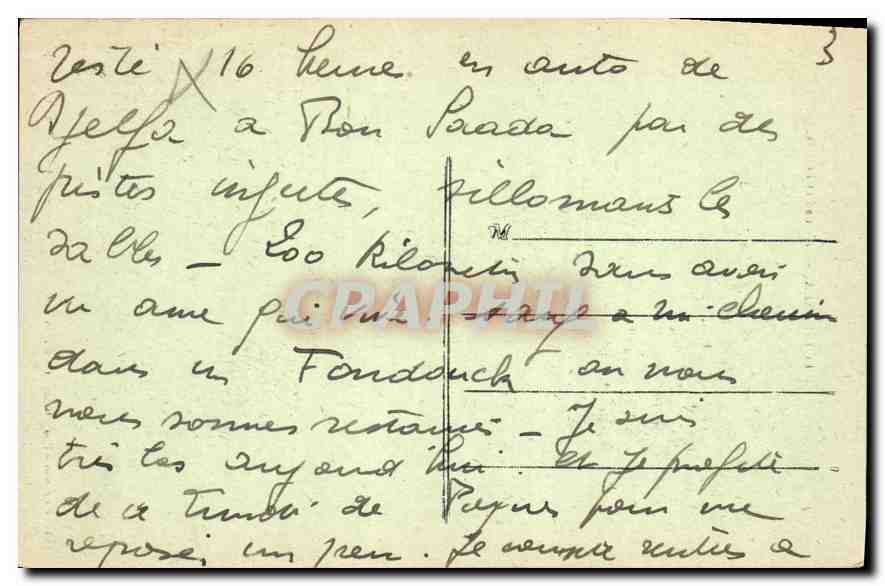 3
resté 16 heures en auto de
Djelfa a Bou Saada par des
pistes infectes, sillonnant les
M
sables - 200 kilometres sans avoir
vu ame qui vive. sauf a mi chemin
dans un Fondouck ou nous
nous sommes restaurés - Je suis
très las aujourd'hui et je profite
de ce lundi de Paques pour me
reposer un peu. Je compte rentrer a
CPARHIL